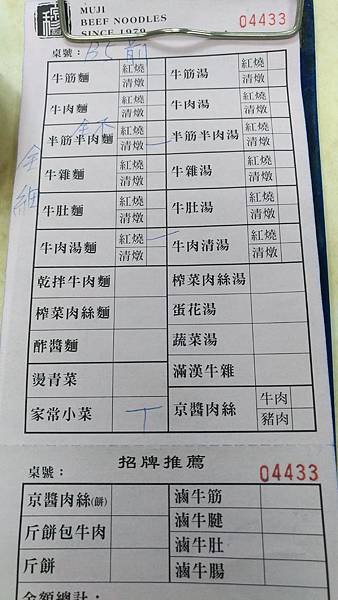 MUJI
BEEF NOODLES
SINCE 1979
04433
桌號：B5 前
牛筋麵 紅燒 清燉 牛筋湯 紅燒 清燉
牛肉麵 紅燒 清燉 牛肉湯 紅燒 清燉
半筋半肉麵 紅燒 清燉 半筋半肉湯 紅燒 清燉
牛雜麵 紅燒 清燉 牛雜湯 紅燒 清燉
牛肚麵 紅燒 清燉 牛肚湯 紅燒 清燉
牛肉湯麵 紅燒 清燉 牛肉清湯 紅燒 清燉
全細
乾拌牛肉麵 榨菜肉絲湯
榨菜肉絲麵 蛋花湯
酢醬麵 蔬菜湯
燙青菜 滿漢牛雜
家常小菜 京醬肉絲 牛肉 豬肉
招牌推薦
桌號： 04433
京醬肉絲(餅) 滷牛筋
斤餅包牛肉 滷牛腱
斤餅 滷牛肚
滷牛腸
金額總計：